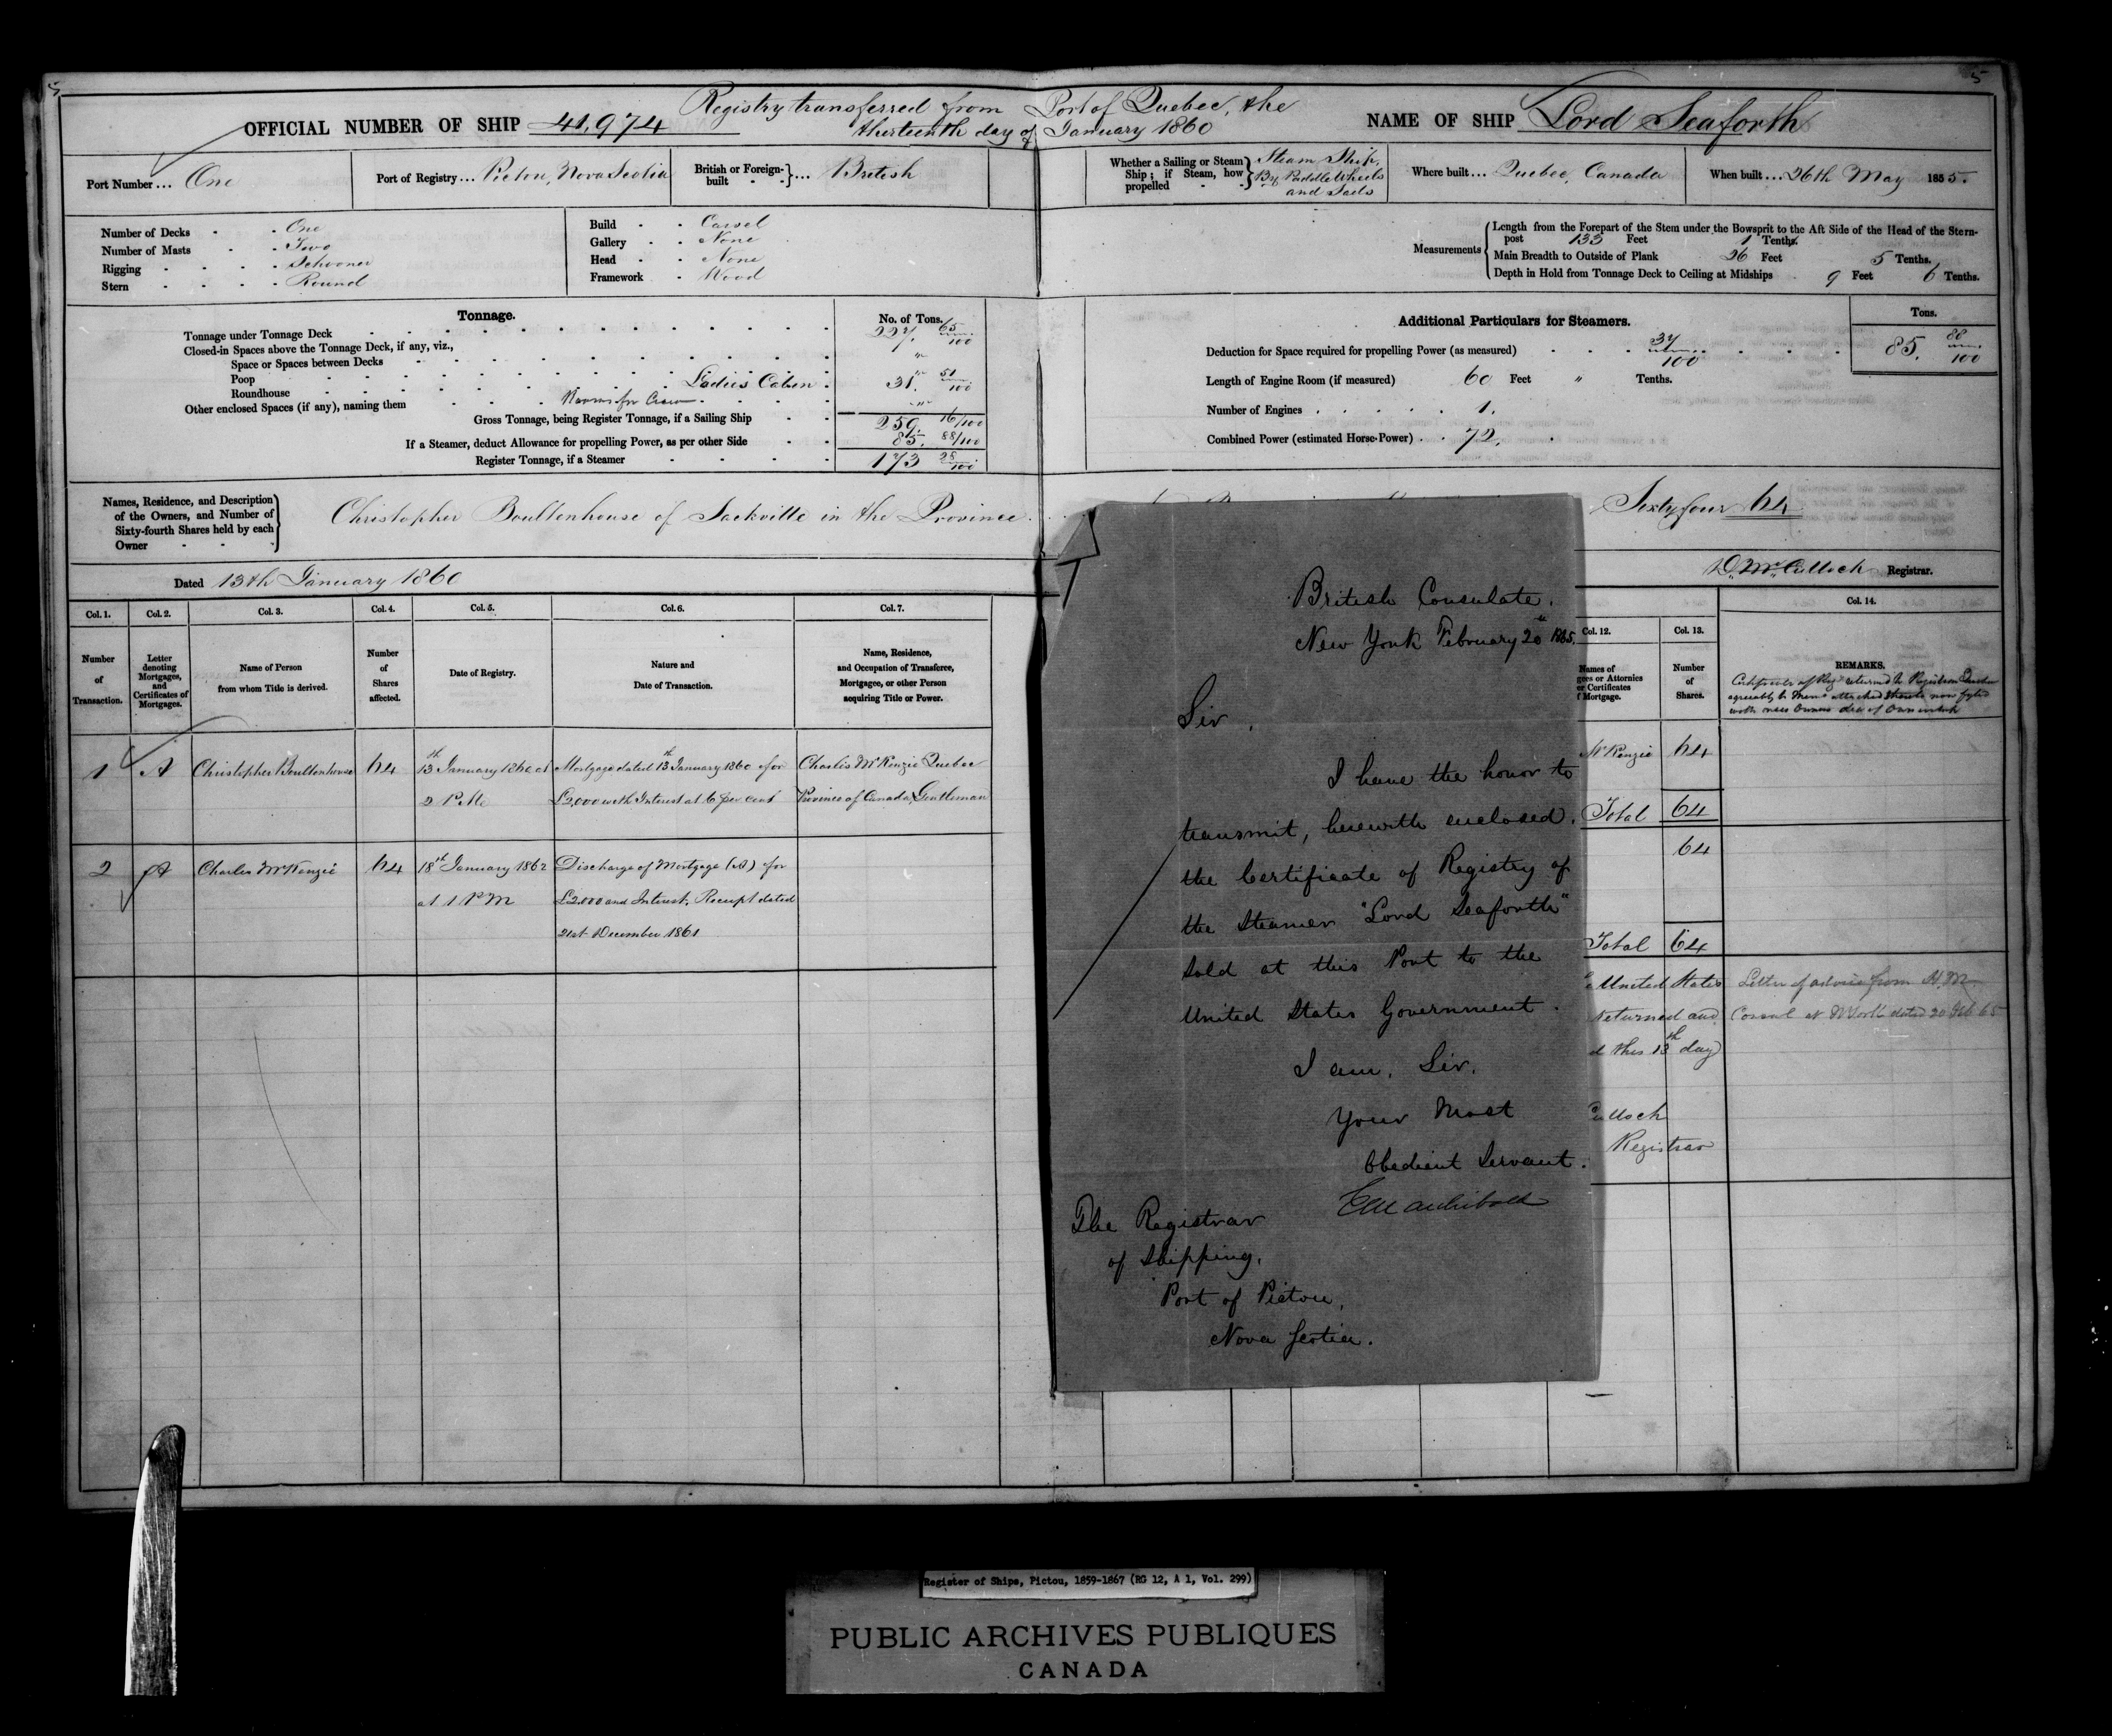 5
5
Registry transferred from Port of Quebec, the
thirteenth day of January 1860
OFFICIAL NUMBER OF SHIP 41,974
NAME OF SHIP Lord Seaforth
Port Number ... One
Port of Registry ... Pictou, Nova Scotia
British or Foreign-built } ... British
Whether a Sailing or Steam Ship; if Steam, how propelled } Steam Ship, By Paddle Wheels and Sails
Where built ... Quebec, Canada
When built ... 26th May 1855.
Number of Decks - - One
Number of Masts - - Two
Rigging - - - - Schooner
Stern - - - - Round
Build - - Carvel
Gallery - - None
Head - - None
Framework - Wood
Measurements
Length from the Forepart of the Stem under the Bowsprit to the Aft Side of the Head of the Stern-
post 133 Feet 1 Tenths.
Main Breadth to Outside of Plank 26 Feet 5 Tenths.
Depth in Hold from Tonnage Deck to Ceiling at Midships 9 Feet 6 Tenths.
Tonnage.
No. of Tons.
Tonnage under Tonnage Deck 227. 65/100
Closed-in Spaces above the Tonnage Deck, if any, viz.,
Space or Spaces between Decks "
Poop Ladies Cabin 31. 51/100
Roundhouse
Other enclosed Spaces (if any), naming them Rooms for Crew
Gross Tonnage, being Register Tonnage, if a Sailing Ship 259. 16/100
If a Steamer, deduct Allowance for propelling Power, as per other Side 85. 88/100
Register Tonnage, if a Steamer 173 28/100
Additional Particulars for Steamers.
Tons.
Deduction for Space required for propelling Power (as measured) 37/100 85. 88/100
Length of Engine Room (if measured) 60 Feet " Tenths.
Number of Engines 1.
Combined Power (estimated Horse-Power) 72.
Names, Residence, and Description
of the Owners, and Number of
Sixty-fourth Shares held by each
Owner
Christopher Boultenhouse of Sackville in the Province
Sixty four 64
Dated 13th January 1860
D. McCulloch Registrar.
Col. 1. Col. 2. Col. 3. Col. 4. Col. 5. Col. 6. Col. 7.
Number of Transaction.
Letter denoting Mortgages, and Certificates of Mortgages.
Name of Person from whom Title is derived.
Number of Shares affected.
Date of Registry.
Nature and Date of Transaction.
Name, Residence, and Occupation of Transferee, Mortgagee, or other Person acquiring Title or Power.
1 A Christopher Boultenhouse 64 13th January 1860 at Mortgage dated 13th January 1860 for Charles McKenzie Quebec
2 P.M. £2,000 with Interest at 6 per cent Province of Canada, Gentleman
2 A Charles McKenzie 64 18th January 1862 Discharge of Mortgage (A) for
at 1 P M £2000 and Interest. Receipt dated
21st December 1861
British Consulate.
New York February 20th 1865.
Sir,
I have the honor to
transmit, herewith enclosed.
the Certificate of Registry of
the Steamer "Lord Seaforth"
sold at this Port to the
United States Government.
I am, Sir,
Your Most
Obedient Servant.
E M Archibald
The Registrar
of Shipping,
Port of Pictou,
Nova Scotia.
Col. 12. Col. 13. Col. 14.
Names of
gees or Attornies
er Certificates
f Mortgage.
Number of Shares.
REMARKS.
Certificate of Reg returned to Registrar Quebec
McKenzie 64
Total 64
64
Total 64
United States
returned and
d this 13th day
Culloch
Registrar
Letter of advice from H.M.
Consul at N York dated 20 Feb 65
Register of Ships, Pictou, 1859-1867 (RG 12, A 1, Vol. 299)
PUBLIC ARCHIVES PUBLIQUES
CANADA